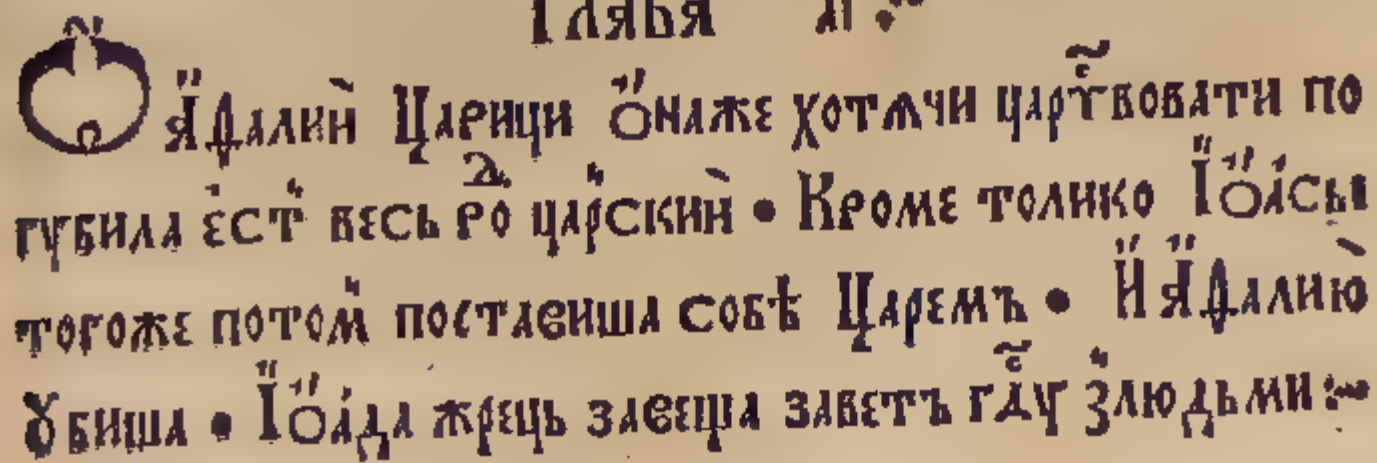 Глава аі
Ѿ Аѳалии Царици онаже хотѧчи царт҃вовати по
губила ест весь родⷣ царский • Кроме толико Іоасы
тогоже потом поставиша собѣ Царемъ • И Аѳалию
ꙋбиша • Іоада жрець завеща заветъ гдⷭ҇у злюдьми